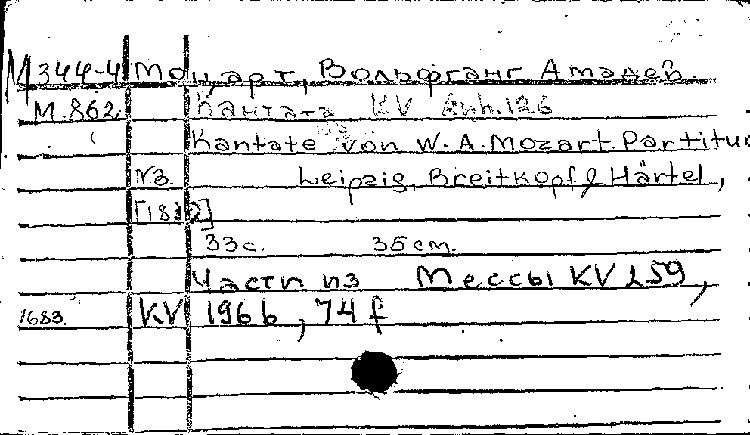 М344-4 Моцарт, Вольфганг Амадей.
М.862. Кантата KV Anh.126
Kantate von W.A.Mozart. Partitur
N3. Leipzig, Breitkopf & Härtel,
[1812]
33с. 35см.
Части из Мессы KV 259,
1683. KV 196b, 74f